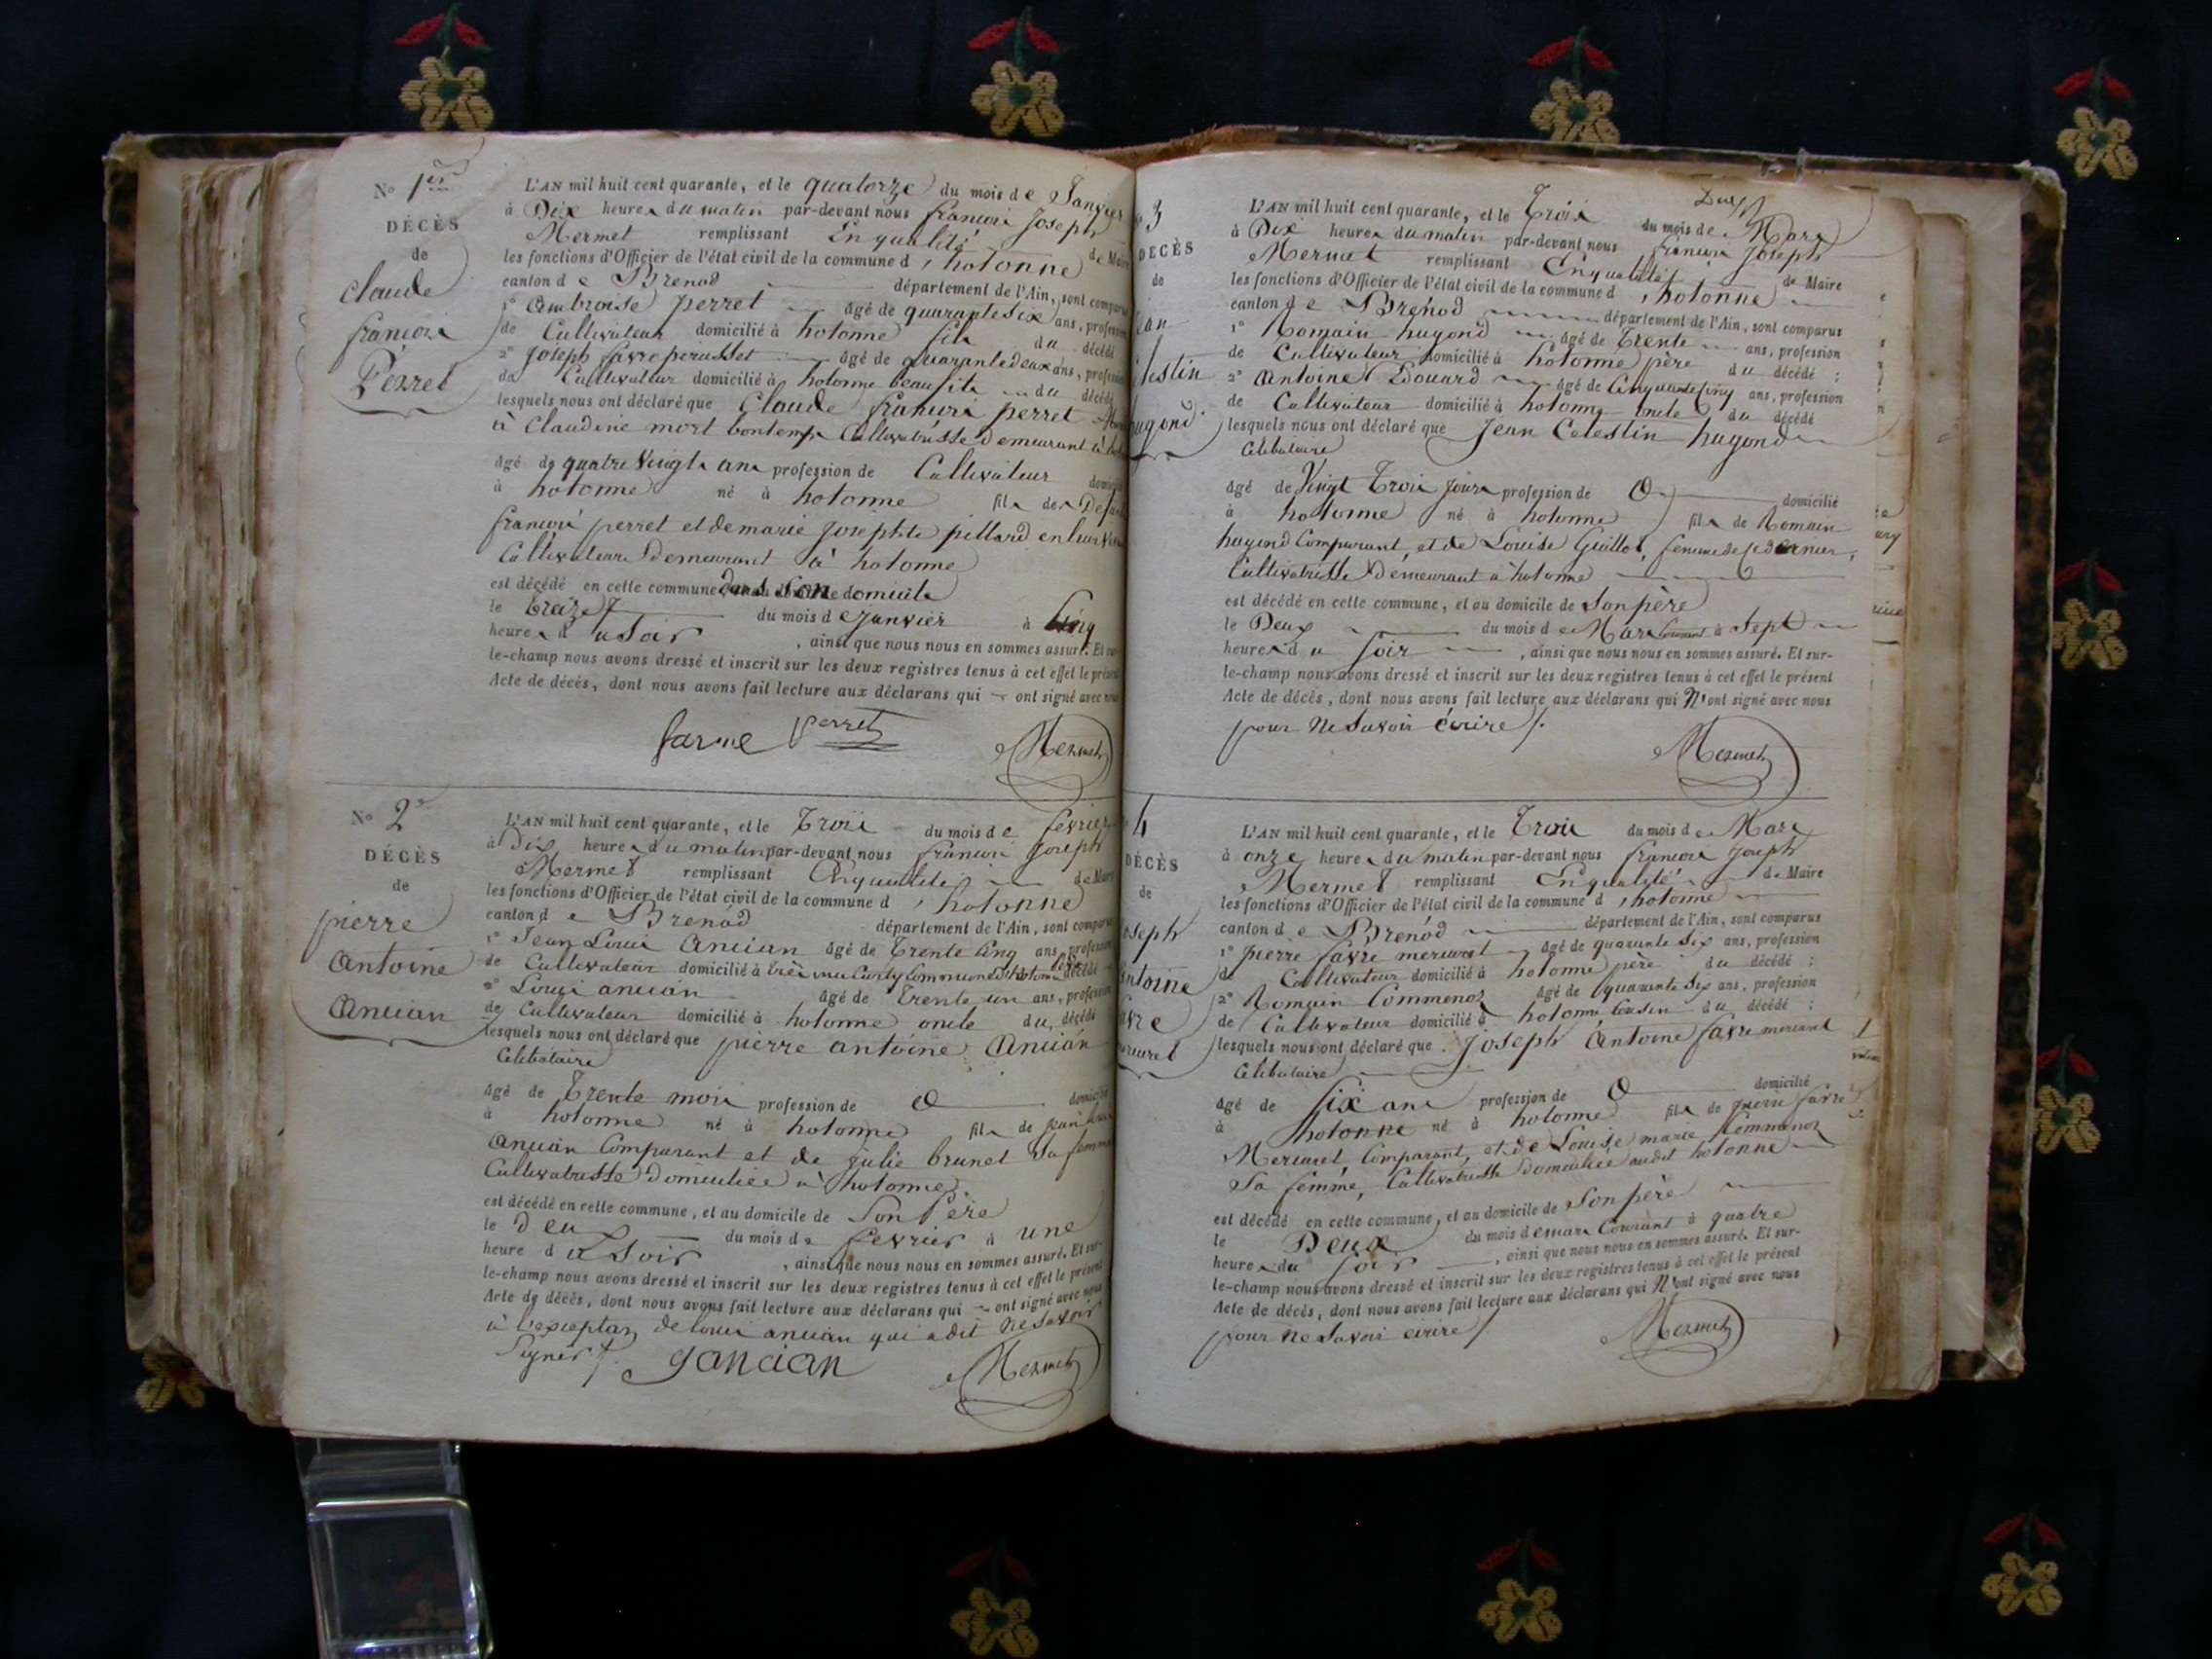 No 1er
DÉCÈS
de
Claude
françois
Perret
L'AN mil huit cent quarante, et le quatorze du mois de Janvier
à Dix heures du matin par-devant nous françois Joseph
Mermet remplissant En qualité de Maire
les fonctions d'Officier de l'état civil de la commune d'hotonne
canton de Brenod département de l'Ain, sont comparus
1° Ambroise perret âgé de quarante six ans, profession
de Cultivateur domicilié à hotonne fils du décédé
2° Joseph favre perusset âgé de quarante deux ans, profession
de Cultivateur domicilié à hotonne beau fils du décédé
lesquels nous ont déclaré que Claude françois perret
à Claudine mort bontemps Cultivatrisse demeurant à
âgé de quatre Vingts ans profession de Cultivateur
à hotonne né à hotonne fils des
françois perret et de marie Josephte pillard en leur
Cultivateurs demeurant à hotonne
est décédé en cette commune dans son domicile
le treize du mois de Janvier à Cinq
heures du Soir, ainsi que nous nous en sommes assuré. Et sur-
le-champ nous avons dressé et inscrit sur les deux registres tenus à cet effet le présent
Acte de décès, dont nous avons fait lecture aux déclarans qui ont signé avec nous
favre Perret Mermet
No 2
DÉCÈS
de
pierre
Antoine
Ancian
L'AN mil huit cent quarante, et le Trois du mois de fevrier
à Dix heures du matin par-devant nous françois Joseph
Mermet remplissant En qualité de Maire
les fonctions d'Officier de l'état civil de la commune d'hotonne
canton de Brenod département de l'Ain, sont comparus
1° Jean Louis Ancian âgé de Trente Cinq ans, profession
de Cultivateur domicilié à commune d'hotonne père décédé
2° Louis ancian âgé de Trente un ans, profession
de Cultivateur domicilié à hotonne oncle du décédé
lesquels nous ont déclaré que pierre antoine Ancian
Celibataire
âgé de Trente mois profession de O
à hotonne né à hotonne fils de Jean Louis
Ancian Comparant et de Julie brunet sa femme
Cultivatrisse Domiciliée à hotonne
est décédé en cette commune, et au domicile de Son Père
le deux du mois de fevrier à une
heure du Soir, ainsi que nous nous en sommes assuré. Et sur-
le-champ nous avons dressé et inscrit sur les deux registres tenus à cet effet le présent
Acte de décès, dont nous avons fait lecture aux déclarans qui ont signé avec nous
à de louis ancian qui a dit Ne Savoir
Signer
J ancian Mermet
3
DÉCÈS
de
ean
lestin
ugond
L'AN mil huit cent quarante, et le Trois du mois de Mars
à Dix heures du matin par-devant nous françois Joseph
Mermet remplissant En qualité de Maire
les fonctions d'Officier de l'état civil de la commune d'hotonne
canton de Brénod département de l'Ain, sont comparus
1° Romain hugond âgé de Trente ans, profession
de Cultivateur domicilié à hotonne père du décédé ;
2° Antoine Edouard âgé de Cinquante Cinq ans, profession
de Cultivateur domicilié à hotonne oncle du décédé
lesquels nous ont déclaré que Jean Celestin hugond
Celibataire
âgé de Vingt Trois Jours profession de O domicilié
à hotonne né à hotonne fils de Romain
hugond Comparant, et de Louise Guillot, femme de ce dernier,
Cultivatrisse Demeurant à hotonne
est décédé en cette commune, et au domicile de Son père
le Deux du mois de Mars Courant à Sept
heures du Soir, ainsi que nous nous en sommes assuré. Et sur-
le-champ nous avons dressé et inscrit sur les deux registres tenus à cet effet le présent
Acte de décès, dont nous avons fait lecture aux déclarans qui N'ont signé avec nous
pour Ne Savoir écrire
Mermet
4
DÉCÈS
de
oseph
ntoine
avre
mercuret
L'AN mil huit cent quarante, et le Trois du mois de Mars
à onze heures du matin par-devant nous françois Joseph
Mermet remplissant En qualité de Maire
les fonctions d'Officier de l'état civil de la commune d'hotonne
canton de Brénod département de l'Ain, sont comparus
1° pierre favre mercuret âgé de quarante Six ans, profession
de Cultivateur domicilié à hotonne père du décédé ;
2° Romain Commenoz âgé de quarante Six ans, profession
de Cultivateur domicilié à hotonne Cousin du décédé ;
lesquels nous ont déclaré que Joseph Antoine favre mercuret
Celibataire
âgé de Six ans profession de O domicilié
à hotonne né à hotonne fils de pierre favre
Mercuret, Comparant, et de Louise marie Commenoz
Sa femme, Cultivatrisse Domiciliée audit hotonne
est décédé en cette commune, et au domicile de Son père
le Deux du mois de mars Courant à quatre
heures du Soir, ainsi que nous nous en sommes assuré. Et sur-
le-champ nous avons dressé et inscrit sur les deux registres tenus à cet effet le présent
Acte de décès, dont nous avons fait lecture aux déclarans qui N'ont signé avec nous
pour Ne Savoir ecrire
Mermet